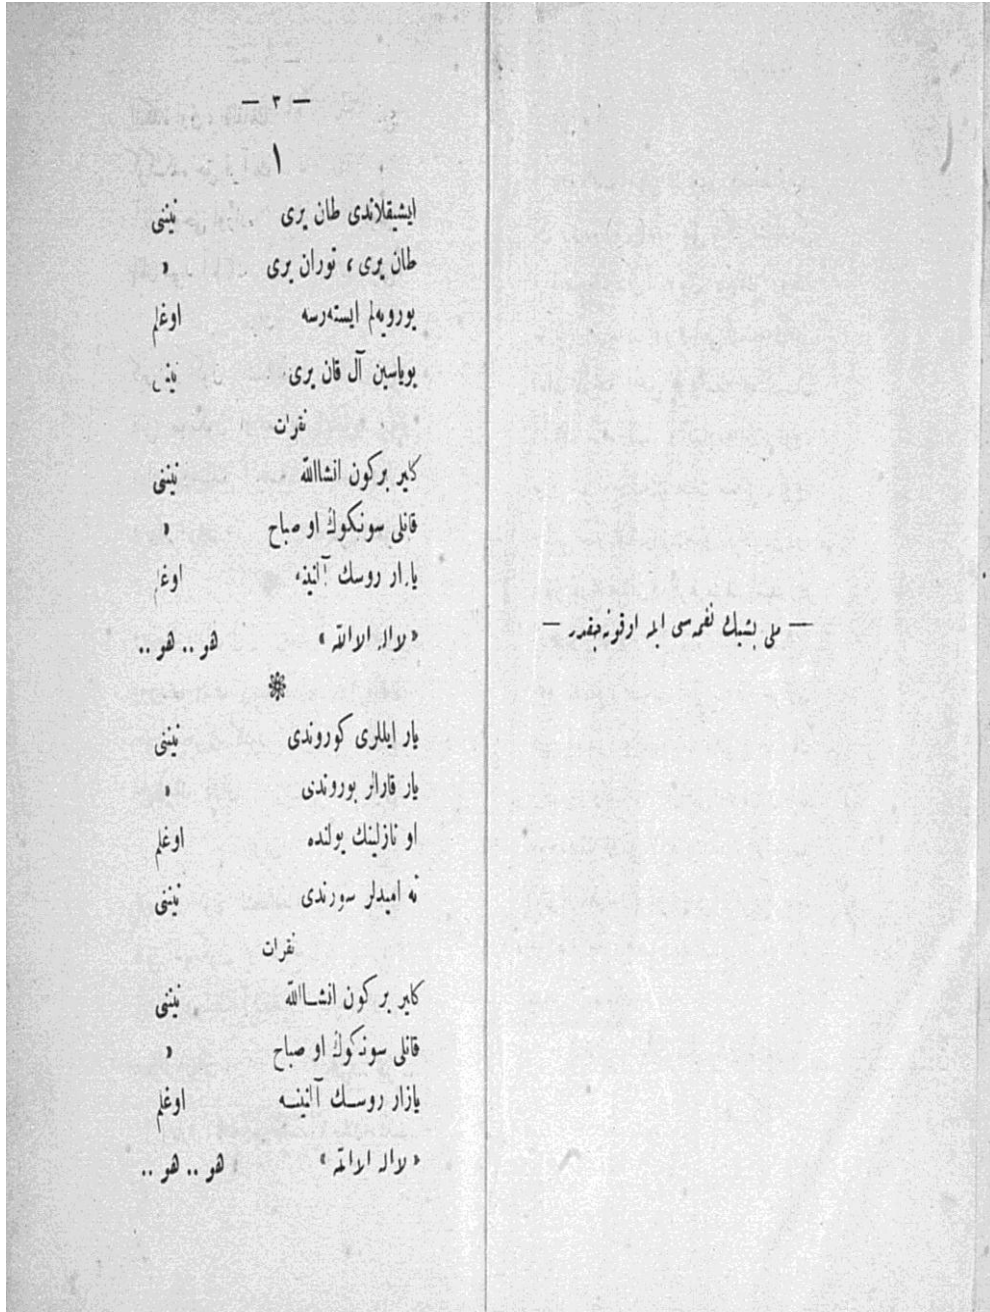 — ملی بشیك نغمه‌سی ایله اوقونه‌جقدر —
— ٣ —
١
ایشیقلاندی طان یری نیننی
طان یری ، توران یری »
یورویه‌لم ایسته‌رسه اوغلم
بویاسین آل قان یری
نقرات
كلیر بركون انشاالله نیننی
قانلی سونكوڭ او صباح »
یازار روسك آلنینه اوغلم
« لااله الاالله » هو .. هو ..
یار ایللری كوروندی نیننی
یار قارالر بوروندی »
او نازلینك یولنده اوغلم
نه امیدلر سورندی نیننی
نقرات
كلیر بر كون انشـاالله نیننی
قانلی سونكوڭ او صباح »
یازار روسـك آلنینـه اوغلم
« لااله الاالله » هو .. هو ..